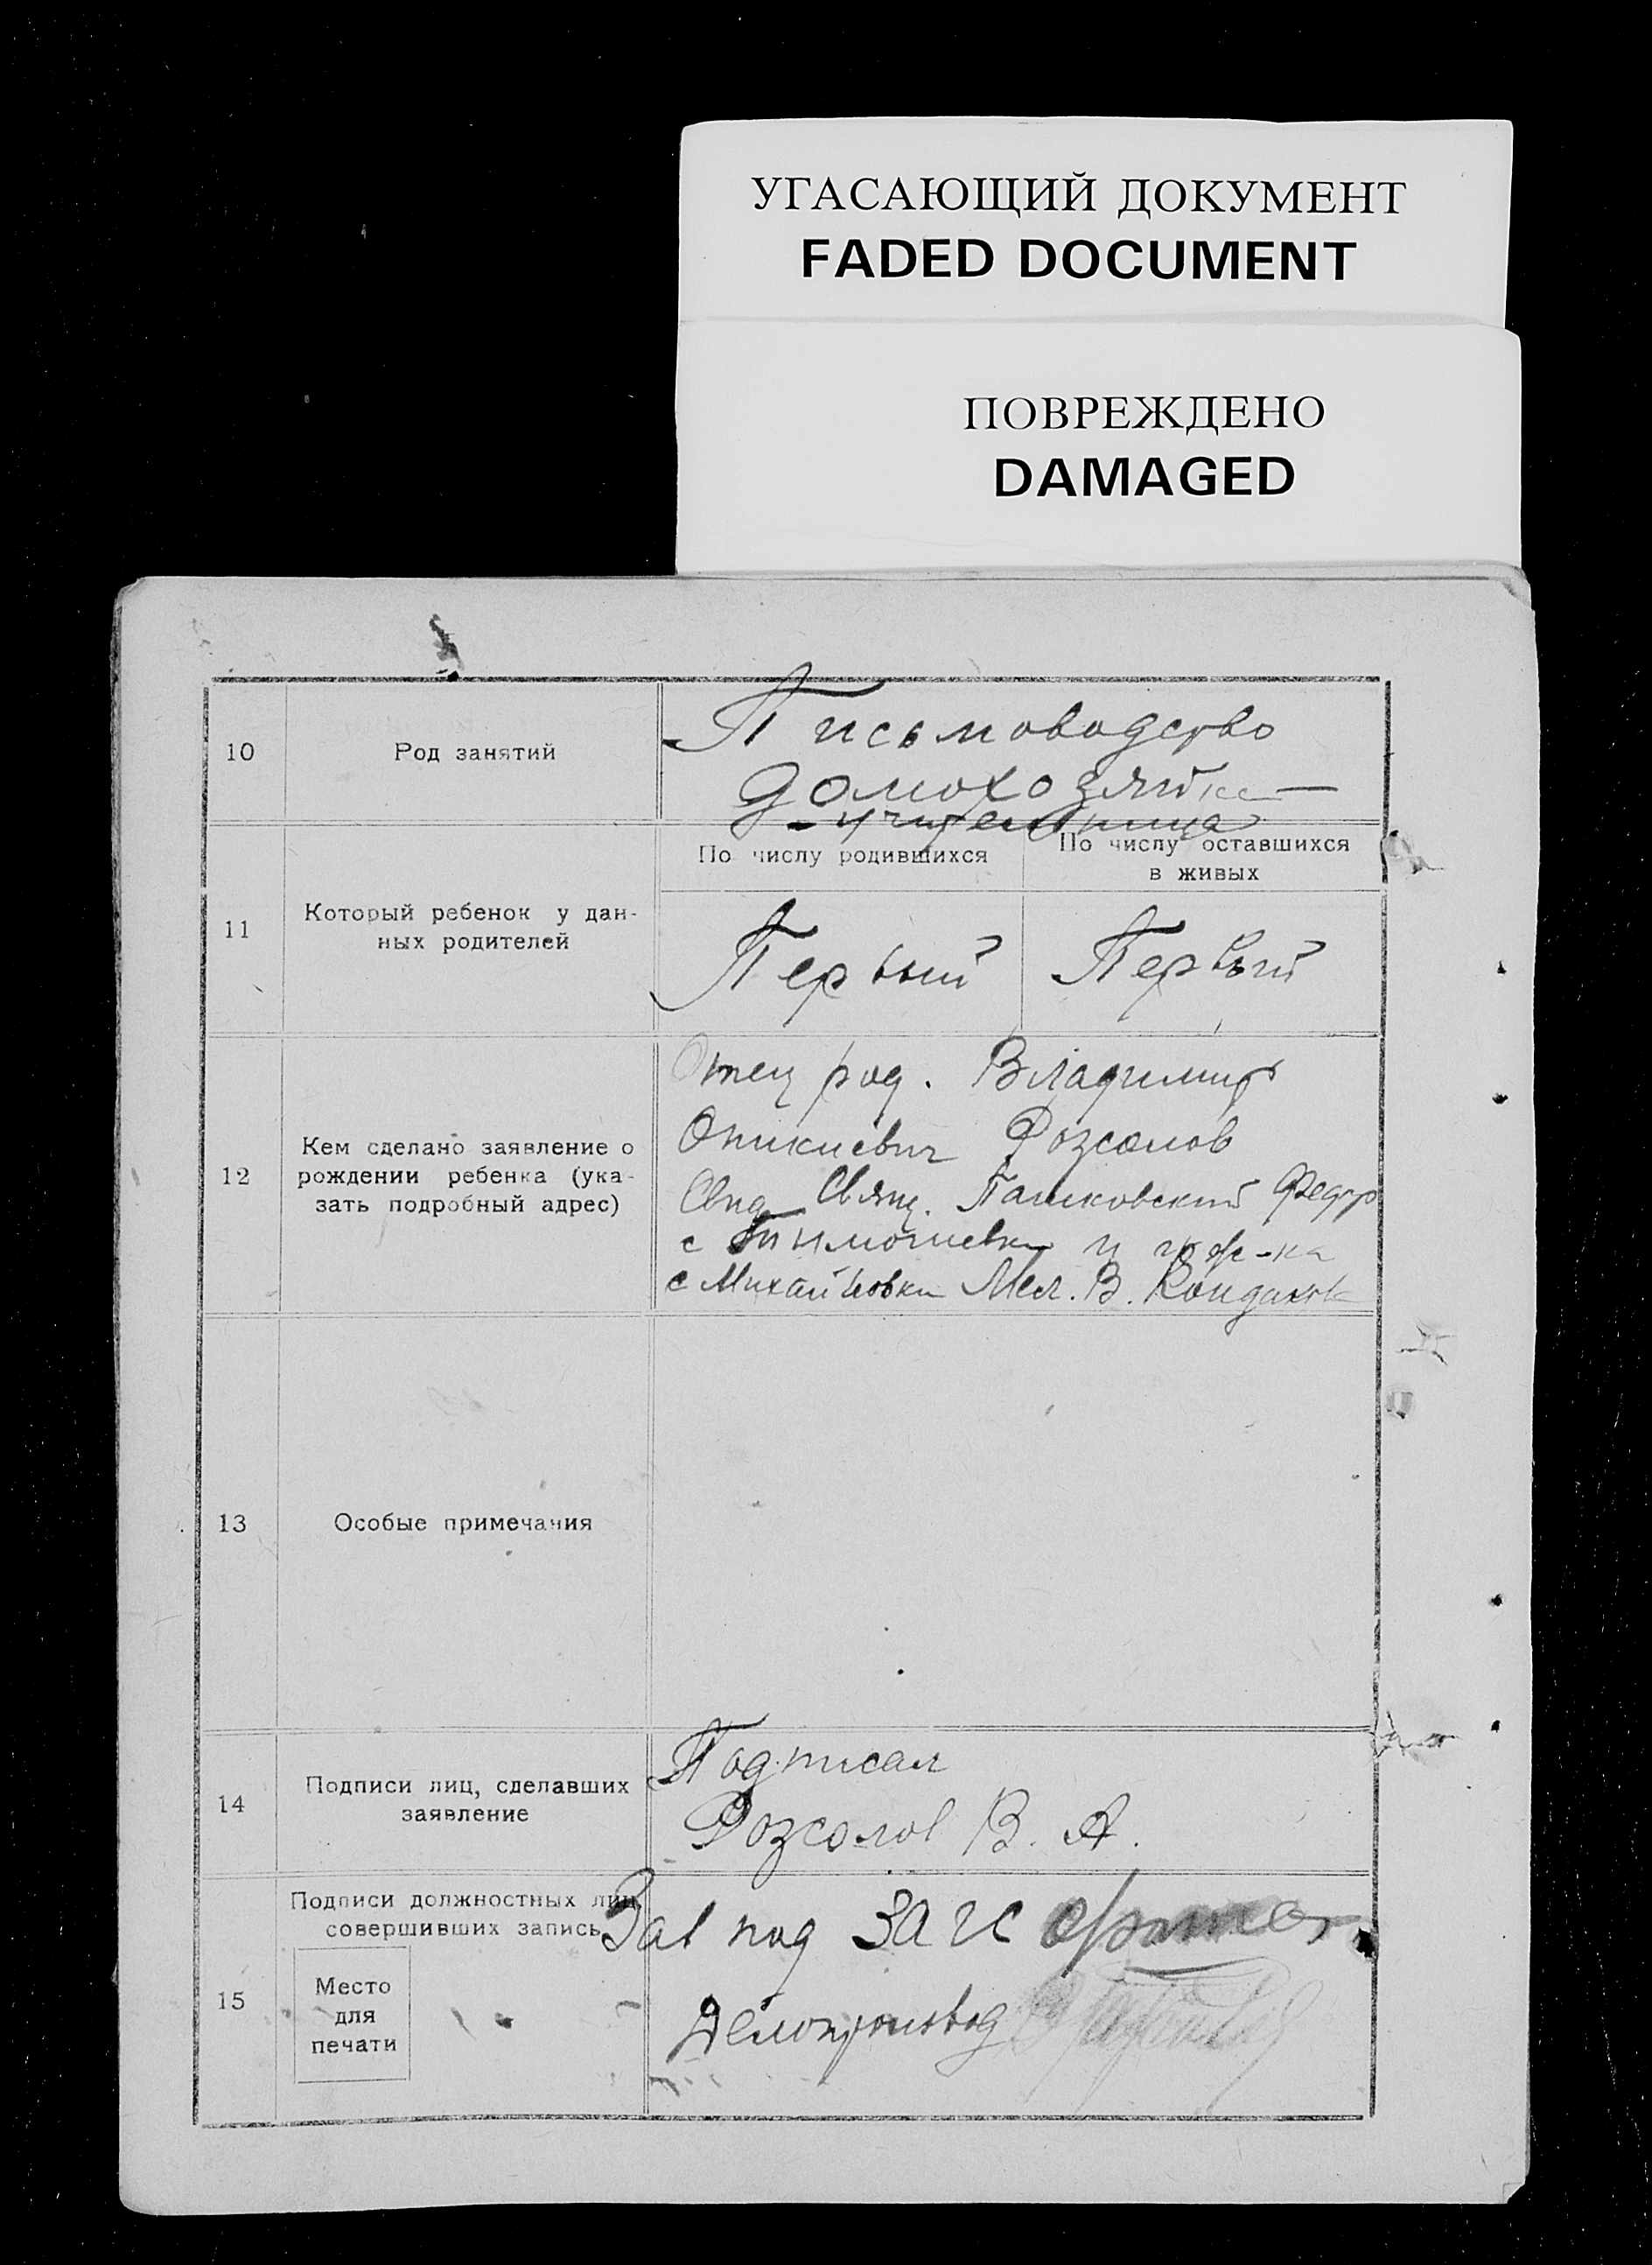 УГАСАЮЩИЙ ДОКУМЕНТ
FADED DOCUMENT
ПОВРЕЖДЕНО
DAMAGED
10
Род занятий
Письмоводство
домохозяйка —
- учительница
11
Который ребенок у дан-
ных родителей
По числу родившихся
По числу оставшихся
в живых
Первый
Первый
12
Кем сделано заявление о
рождении ребенка (ука-
зать подробный адрес)
Отец род. Владимир
Оникиевич Розсолов
Свид Свящ. Пашковский Федор
с Тимошевки и
с Михайловки Мел. В.
13
Особые примечания
14
Подписи лиц, сделавших
заявление
Подписал
Розсолов В. А.
15
Подписи должностных лиц,
совершивших запись
Место
для
печати
Зав под ЗАГС
Делопроизвод